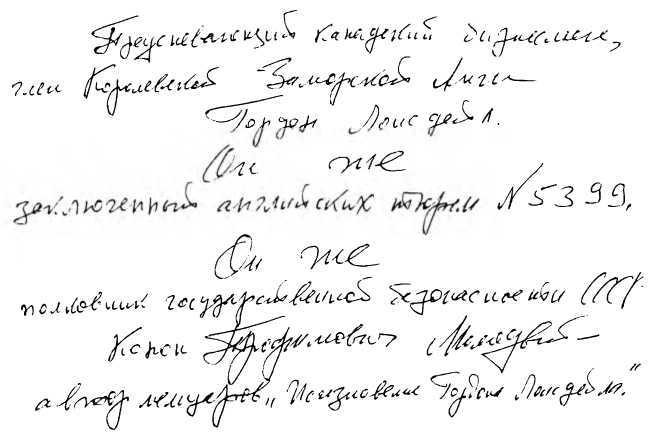 Преуспевающий канадский бизнесмен,
член Королевской Заморской Лиги
Гордон Лонсдейл.
Он же
заключенный английских тюрем № 5399.
Он же
полковник государственной безопасности СССР
Конон Трофимович Молодый –
автор мемуаров „ Гордона Лонсдейла."